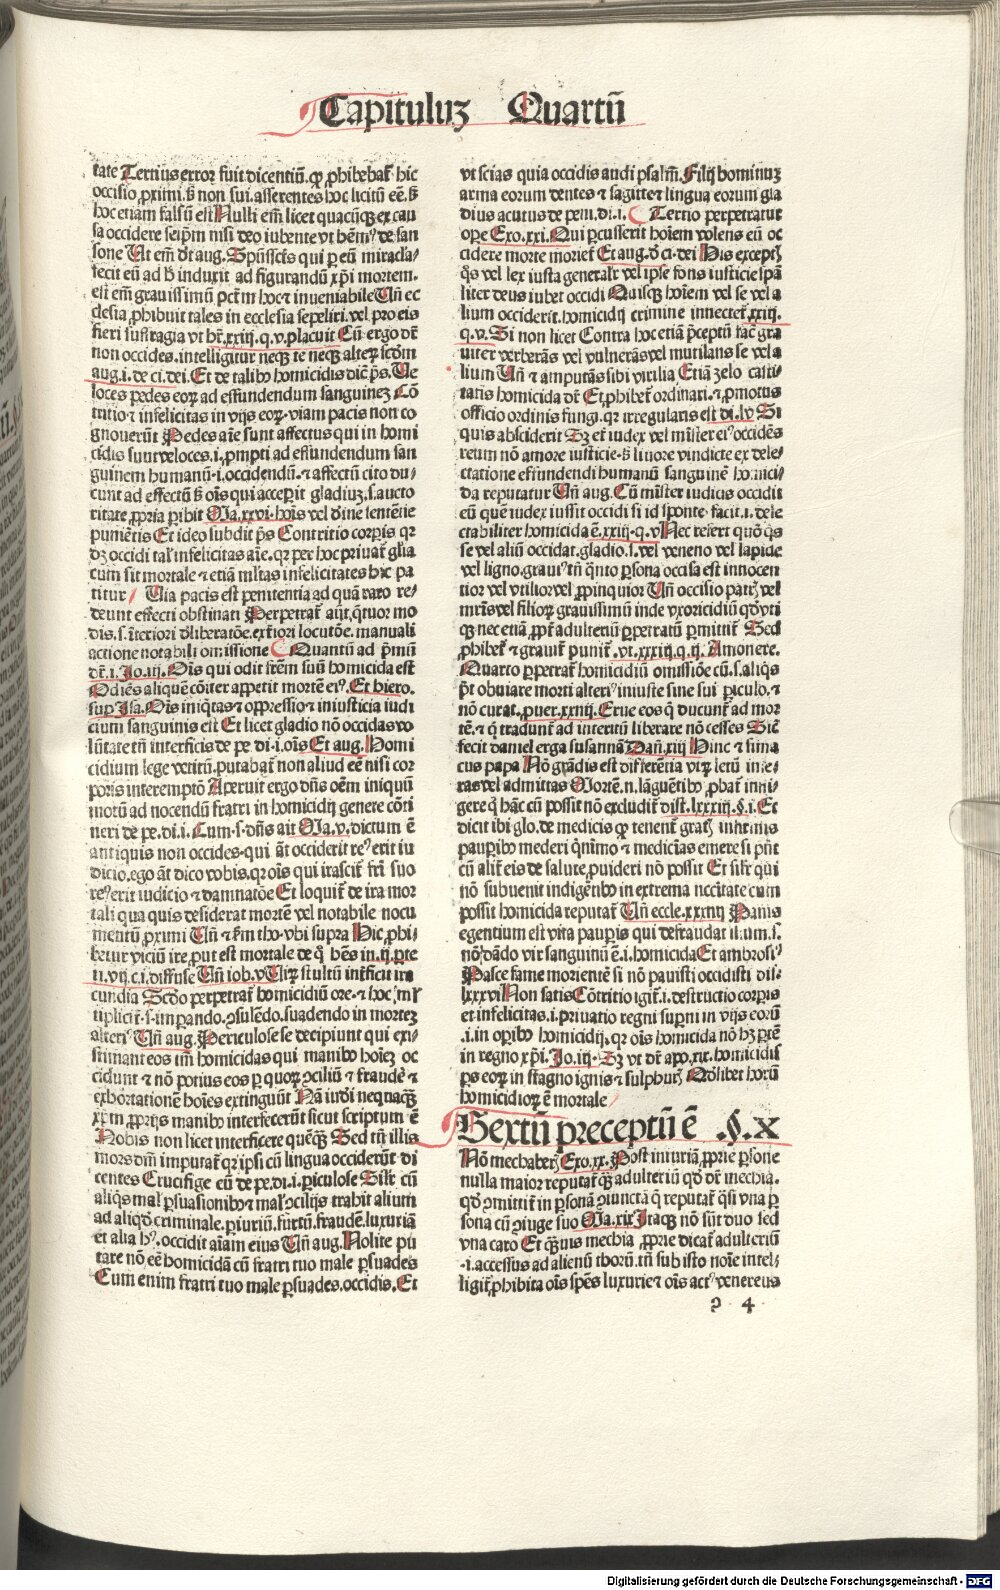 Capituluz Quartũ
tate Tertius error fuit dicentiũ. ꝙ ꝓhibebat᷑ hic
occisio ꝓximi. sꝫ non sui. asserentes hoc licitũ eē. sꝫ
hoc etiam falsũ est Nulli em̃ licet quacũqꝫ ex cau
sa occidere seip̃m nisi deo iubente vt
sone Ut em̃ dt̃ aug. Sp̃ussct̃s qui ꝑ eũ miracla
fecit eũ ad h̵ induxit ad figurandũ xp̃i mortem.
est em̃ grauissimũ pctm̃ hoc ⁊ inueniabile Uñ ec
clesia ꝓhibuit tales in ecclesia sepeliri. vel pro eis
fieri suffragia vt hr̃. xxiij. q. v. placuit Cũ ergo dt̃
non occides. intelligitur neqꝫ te neqꝫ alterꝫ scd̃m
aug. i. de ci. dei. Et de talibꝰ homicidis dic̃ p̃s. Ue
loces pedes eoꝝ ad effundendum sanguinez Cõ
tritio ⁊ infelicitas in vijs eoꝝ. viam pacis non co
gnouerũt Pedes aĩe sunt affectus qui in homi
cidis sunt veloces. i. ꝓmpti ad effundendum san
guinem humanũ. i. occidendũ. ⁊ affectũ cito du
cunt ad effectũ sꝫ oĩs qui acceperit gladiuz. s. aucto
ritate ꝓpria ꝑibit Ma. xxvi. hoĩs vel diuine sententie
punientis Et ideo subdit p̃s Contritio corꝑis qr
dꝫ occidi tal᷑ infelicitas aĩe. qr per hoc priuat᷑ gl̃ia
cum sit mortale ⁊ etiã ml̃tas infelicitates hic pa
titur Uia pacis est penitentia ad quã raro re
deunt effecti obstinati Perpetrat᷑ aũt q̃tuor mo
dis. s. ĩteriori d̃liberatõe. ext̃iori locutõe. manuali
actione notabili omissione Quantũ ad p̃mũ
dt̃. i. Jo. iij. Oĩs qui odit fr̃em suũ homicida est
Odiẽs aliquẽ cõiter appetit mortẽ eiꝰ. Et hiero.
sup Jsa. Oĩs iniq̃tas ⁊ oppressio ⁊ iniusticia iudi
cium sanguinis est Et licet gladio nõ occidas vo
lũtate tñ interficis de pe di. i. oĩs Et aug. Homi
cidium lege vetitũ. putabat᷑ non aliud eẽ nisi cor
poris interemptõ Aperuit ergo dñs oẽm iniquũ
motũ ad nocendũ fratri in homicidij genere cõti
neri de pe. di. i. Cum. s. dñs ait Ma. v. dictum ẽ
antiquis non occides. qui ãt occiderit reꝰ erit iu
dicio. ego ãt dico vobis. qr ois qui irascit᷑ fr̃i suo
reꝰ erit iudicio ⁊ damnatõe Et loquit᷑ de ira mor
tali qua quis desiderat mortẽ vel notabile nocu
mentũ ꝓximi Uñ ⁊ s̃m tho. vbi supra Hic ꝓhi
betur viciũ ire. put est mortale de q̃ hẽs in. ij. ꝑte
ti. vij. c. i. diffuse Uñ iob. v Uirꝫ stultũ interficit ira
cundia Scd̃o perpetrat᷑ homicidiũ ore. ⁊ hoc ml̃
tiplicit᷑. s. imꝑando. ꝯsulẽdo. suadendo in mortez
alteriꝰ Uñ aug. Periculose se decipiunt qui exi
stimant eos tm̃ homicidas qui manibꝰ hoĩez oc
cidunt ⁊ nõ potius eos ꝑ quoꝝ ꝯciliũ ⁊ fraudẽ ⁊
exhortationẽ hoĩes extinguũt Nã iudei nequaqꝫ
xp̃m ꝓprijs manibꝰ interfecerũt sicut scriptum ẽ
Nobis non licet interficere quẽqꝫ Sed tñ illis
mors dñi imputat᷑ qr ipsi eũ lingua occiderũt di
centes Crucifige eũ de pe. di. i. ꝑiculose Silr̃ cũ
aliqs mal᷑ ꝑsuasionibꝰ ⁊ mal᷑ ꝯcilijs trahit alium
ad aliqd̃ criminale. ꝑiuriũ. furtũ. fraudẽ. luxuriã
et alia hꝰ. occidit aĩam eius Uñ aug. Nolite pu
tare nõ eẽ homicidã cũ fratri tuo male ꝑsuades
Cum enim fratri tuo male ꝑsuades. occidis. Et
vt scias quia occidis audi psalm̃. Filij hominuz
arma eorum dentes ⁊ sagitte ⁊ lingua eorum gla
dius acutus de peni. di. i. Tertio perpetratur
oꝑe Exo. xxi. Qui ꝑcusserit hoĩem volens eũ oc
cidere morte moriet᷑ Et aug. d̃ ci. dei His exceptꝭ
q̃s vel lex iusta generalr̃ vel ipse fons iusticie sp̃a
liter deus iubet occidi Quisqꝫ hoĩem vel se vel a
lium occiderit. homicidij crimine innectet᷑. xxiij.
q. v. Si non licet Contra hoc etiã p̃ceptũ fac̃ gra
uiter verberãs vel vulnerãs vel mutilans se vel a
lium Uñ ⁊ amputãs sibi virilia Etiã zelo casti
tatis homicida dt̃ Et ꝓhibet᷑ ordinari. ⁊ ꝓmotus
officio ordinis fungi. qr irregularis est di. lv Si
quis absciderit Sꝫ et iudex vel mĩster eiꝰ occidẽs
reum nõ amore iusticie. sꝫ liuore vindicte ex dele
ctatione effundendi humanũ sanguinẽ homici
da reputatur Uñ aug. Cũ mĩster iudicis occidit
eũ quẽ iudex iussit occidi si id sponte facit. i. dele
ctabiliter homicida ẽ. xxiij. q. v Nec refert quõ q̃s
se vel aliũ occidat. gladio. s. vel veneno vel lapide
vel ligno. grauiꝰ tñ q̃nto ꝑsona occisa est innocen
tior vel vtilior vel ꝓpinquior Uñ occisio patrꝭ vel
mr̃is vel filioꝝ grauissimũ inde vxoricidiũ qd̃ vti
qꝫ nec etiã ꝓpt᷑ adulteriũ ꝑpetratũ ꝑmittit᷑ Sed
ꝓhibet᷑ ⁊ grauit᷑ punit᷑. vt. xxxiij. q. ij. Amonere.
Quarto ꝑpetrat᷑ homicidiũ omissiõe cũ. s. aliq̃s
p̃t obuiare morti alteriꝰ iniuste sine sui ꝑiculo. ⁊
nõ curat. ꝓuer. xxiiij. Erue eos q̃ ducunt᷑ ad mor
tẽ. ⁊ q̃ tradunt᷑ ad interitũ liberare nõ cesses Sic̃
fecit daniel erga susannã Dañ. xiij Hinc ⁊ sima
cus papa Nõ grãdis est differẽtia vtꝝ letũ infe
ras vel admittas Mortẽ. n. lãguẽtibꝰ ꝓbat᷑ infli
gere q̃ hãc cũ possit nõ excludit᷑ dist. lxxxiij. §. i. Et
dicit ibi glo. de medicis ꝙ tenent᷑ gratꝭ infirmis
pauꝑibꝰ mederi q̃nĩmo ⁊ medicinas emere si p̃nt
cũ alit᷑ eis de salute ꝓuideri nõ possit Et silr̃ qui
nõ subuenit indigẽtibꝰ in extrema nccitate cum
possit homicida reputat᷑ Uñ eccle. xxxiiij Panis
egentium est vita pauꝑis qui defraudat illum. s.
nõ dãdo vir sanguinũ ẽ. i. homicida Et ambrosiꝰ
Pasce fame morientẽ si nõ pauisti occidisti dis.
lxxxvi Non satis Cõtritio igit᷑. i. destructio corꝑis
et infelicitas. i. priuatio regni suꝑni in vijs eorũ
.i. in oꝑibꝰ homicidij. qr oĩs homicida nõ hꝫ ꝑtẽ
in regno xp̃i. Jo. iij. Sꝫ vt dt̃ apo. xix. homicidis
ꝑs eoꝝ in stagno ignis ⁊ sulphurꝭ Qd̃libet horũ
homicidioꝝ ẽ mortale
Sextũ preceptũ ẽ .§. X
Nõ mechaberꝭ Exo. xx. Post iniuriã ꝓprie ꝑsone
nulla maior reputat᷑ qꝫ adulteriũ qd̃ dt̃ mechia.
qd̃ ꝯmittit᷑ in ꝑsonã ꝯiunctã q̃ reputat᷑ q̃si vna ꝑ
sona cũ ꝯiuge suo Ma. xix Jtaqꝫ nõ sũt duo sed
vna caro Et q̃uis mechia ꝓprie dicat᷑ adulteriũ
.i. accessus ad alienũ thorũ. tñ sub isto noĩe intel
ligit᷑ ꝓhibita oĩs sp̃es luxurie ⁊ oĩs actꝰ venereus
2 4
Digitalisierung gefördert durch die Deutsche Forschungsgemeinschaft - DFG